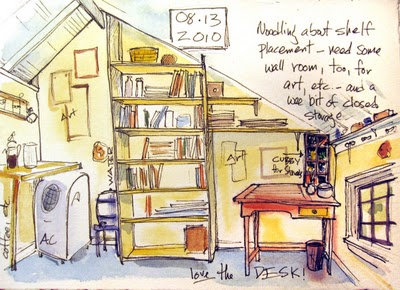 08.13
2010
Noodling about shelf
placement - need some
wall room, too, for
art, etc - and a
wee bit of closed
storage.
Art
Art
CUBBY
for Stamps
WALL
coffee etc
AC
love the DESK!